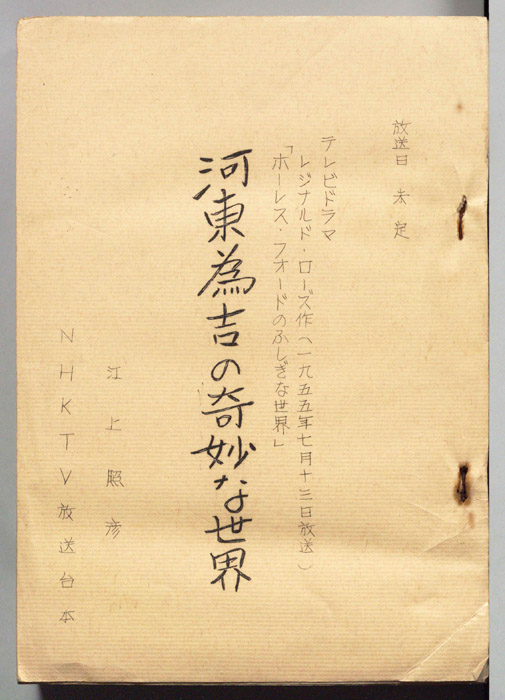 放送日 未定
テレビドラマ
レジナルド・ローズ作(一九五五年七月十三日放送)
「ホーレス・フォードのふしぎな世界」
河東為吉の奇妙な世界
江上照彦
NHKTV放送台本